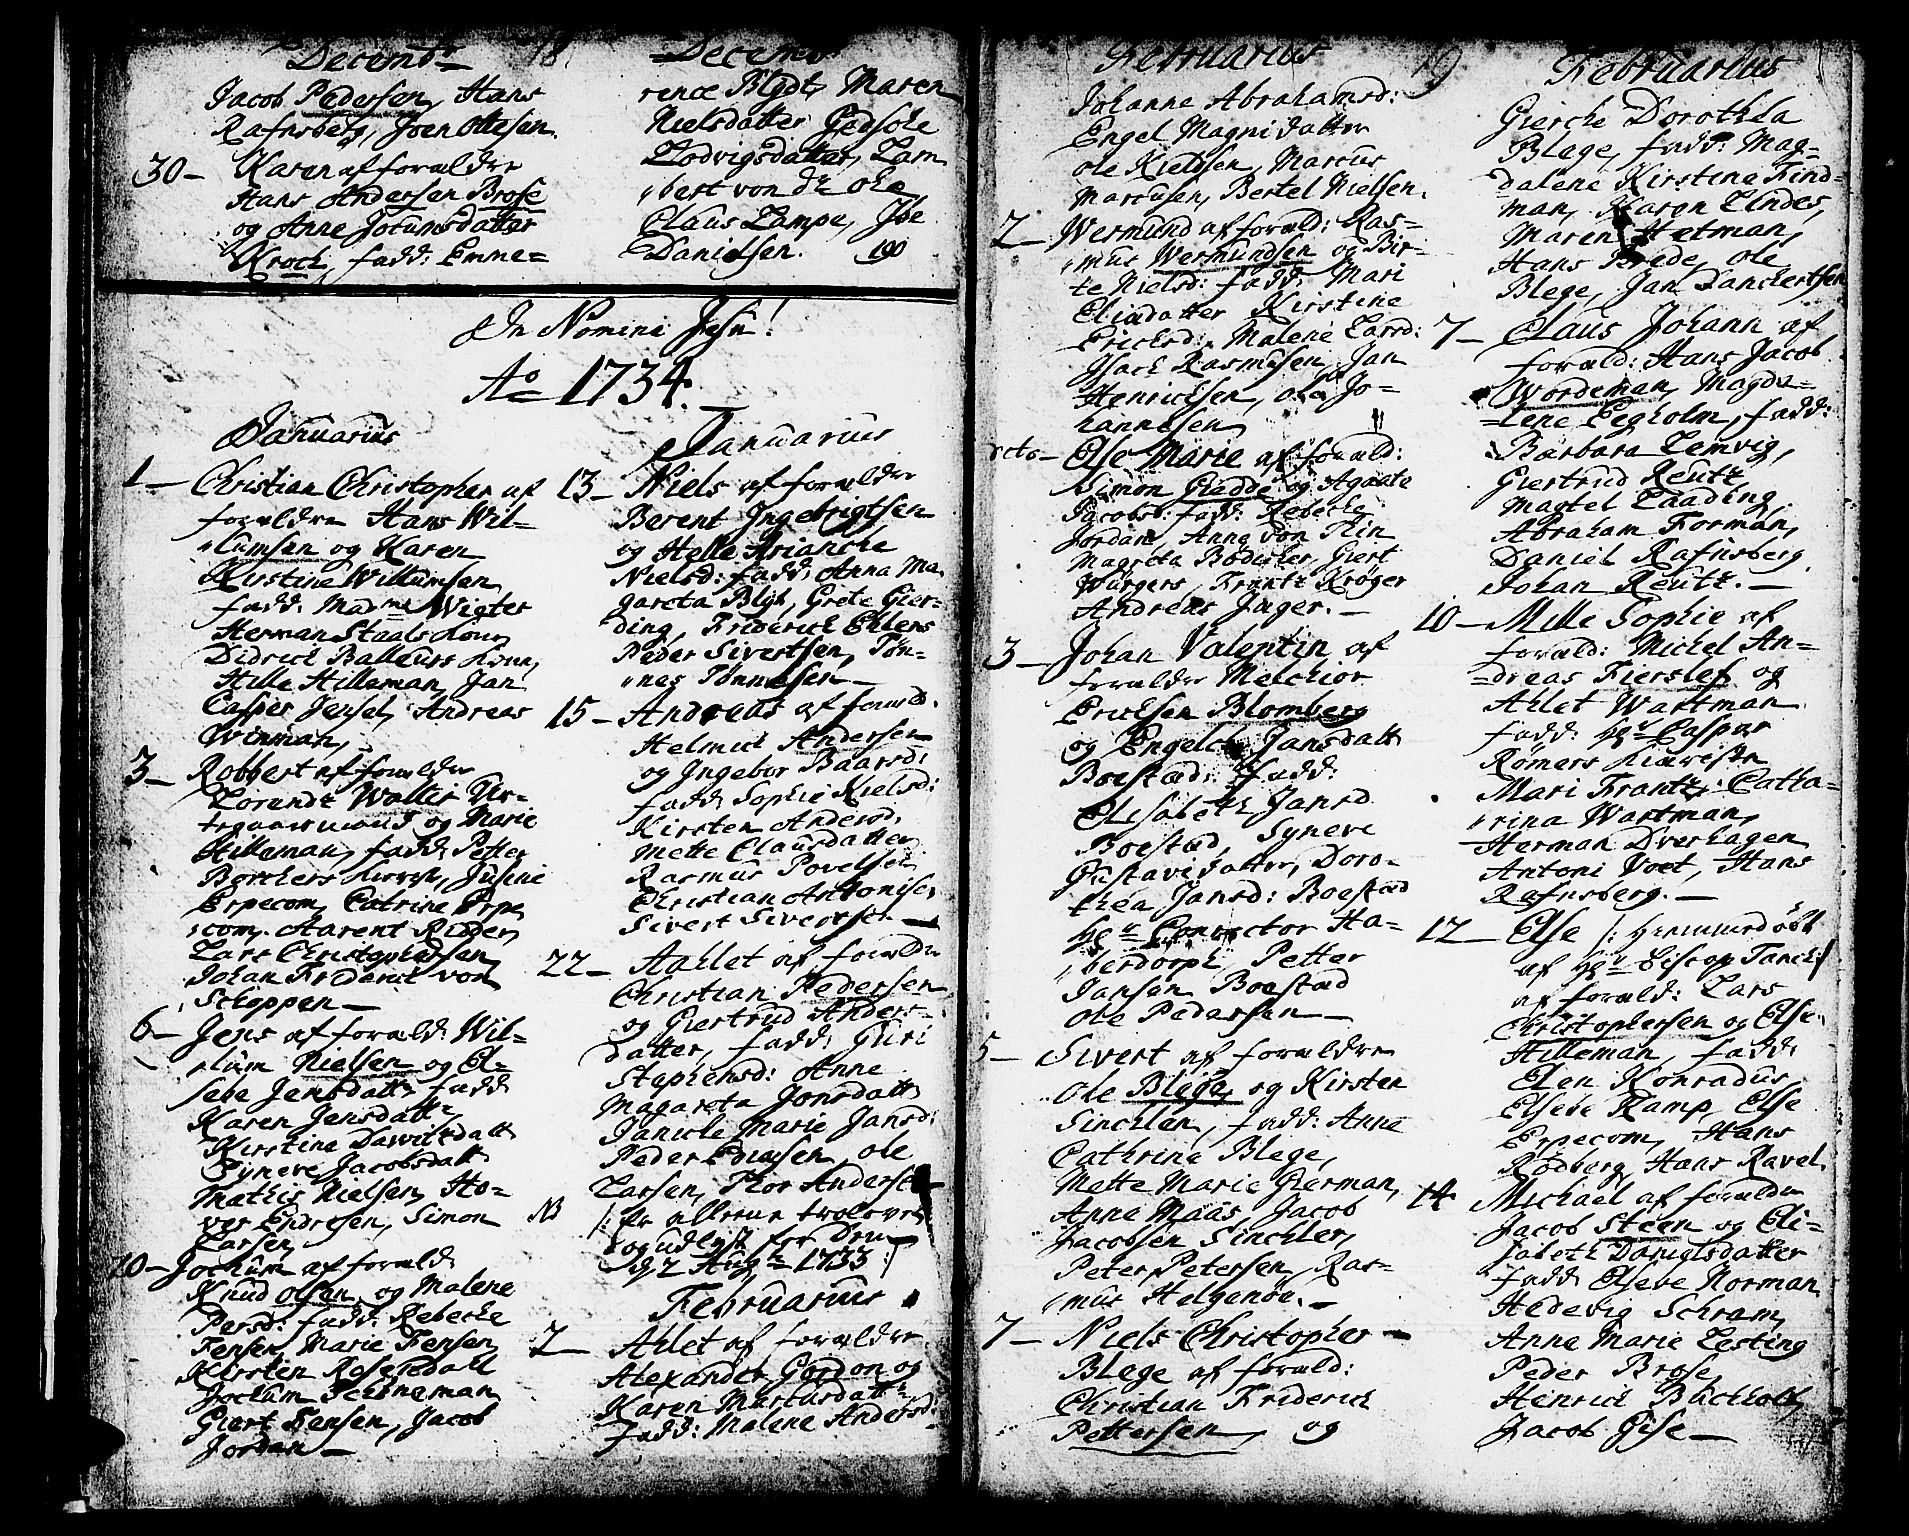 Decembr
Jacob Pedersen, Hans
Rafnsberg, Joen Ottesen.
30 - Karen af forældre
Hans Andersen Brose
og Anne Jochumsdatter
Krock, fadd: Emme=
18
Decemb
rence Blydt, Maren
Nielsdatter Gedsche
Lodvigsdatter, Lam
bert von d: Ohe
Claus Lampe, Jbe
Danielsen. 190
In Nomine Jesu!
Ao 1734.
Januarius
1 - Christian Christopher af
forældre Hans Wil=
lumsen og Karen
Kirstine Willumsen
fadd: Madme Wigter
Herman Staals Kone,
Didrich Balleurs Kone,
Hille Hilleman, Jan
Casper Jensel, Andreas
Winman,
3 - Robbert af forældre
Lorendz Wallis
og Marie
Hilleman, fadd: Petter
Borchers Jusine
Erpecom, Catrine Erpe
com. Aarent Ridder,
Lars Christophersen,
Johan Friderich von
Schoppen -
6 - Jens af foræld: Wil=
lum Nielsen og El=
sebe Jensdattr fadd
Karen Jensdattr
Kirstine Davidsdattr
Syneve Jacobsdattr
Mathis Nielsen, Ho=
ver Endresen, Simon
Larsen
10 - Jochum af foræld
Knud Olsen og Malene
Persd: fadd: Rebecke
Fensen, Marie Fensen
Kirsten Rosendahl
Jochum Schöneman
Giert Fensen, Jacob
Jordan -
Januarius
13 - Niels af forældre
Berent Ingebrigtsen
og Helle Arianche
Nielsd: fadd: Anna Ma
gareta Blyt, Grete Gier=
ding, Friderich Ehlers
Peder Sivertsen, Tön=
nes Tönnesen -
15 - Andreas af foræld.
Helmich Andersen
og Ingebor Baarsd:
fadd: Sophie Nielsd:
Kirsten Andersd,
Mette Clausdatter
Rasmus Povelsen
Christian Anthonisen
Sivert Siversen -
22 - Aahlet af forældre
Christian Pedersen,
og Giertrud Anders=
datter, fadd: Guri
Stephensd: Anne
Magareta Jonsdattr
Janicke Marie Jansd:
Peder Edvisen, Ole
Larsen, Thor Anders
NB /: Er allene trolovet
og udlyst for Drn
d 2 Aug 1733 :/
Februarius
2 - Ahlet af forældre
Alexander Gordon og
Karen Marcusdattr
fadd: Malene Andersd:
Februarius
Johanne Abrahamsd:
Engel Magni datter
Ole Kieldsen, Marcus
Marcusen, Bertel Nielsen.
2 - Wermund af foræld: Ras=
mus Wermundsen og Bir=
te Nielsd: fadd: Mari
Elisdatter Kirstine
Ericksd:, Malene Larsd:
Isach Rasmusen, Jan
Henricksen, Ole Jo=
hannesen
dicto - Else Marie af foræld:
Simon Giedde og Agaate
Jacobsd: fadd: Rebecke
Jordan, Anne von Rin
Magreta Bödicker, Giert
Würgers, Frantz Kröger
Andreas Jnger. -
3 - Johan Valentin af
forældre Melchior
Ericksen Blomberg
og Engelch Jansdattr
Boestad: fadd:
Elisabeth Jansd
Boestad, Syneve
Gustavi datter, Doro=
thea Jansd: Boestad
Hr Conrector Ha=
berdorph, Petter
Jansen Boestad
Ole Pedersen -
5 - Sivert af forældre
Ole Blege, og Kirsten
Sinchler, fadd: Anne
Cathrine Blege,
Mette Marie Gierman,
Anne Maas, Jacob
Jacobsen Sinchler,
Peter Petersen, Ras=
mus Helgenöe. -
7 - Niels Christopher -
Blege af foræld:
Christian Friderich
Pettersen, og
19
Februarius
Gierche Dorothea
Blege, fadd: Mag=
dalene Kirstine Find=
man, Karen Lindes,
Maren Hetman,
Hans Brede, Ole
Blege, Jan Danckertsen
7 - Claus Johann af
foræld: Hans Jacob
Wordeman, Magda=
lene Legholm, fadd:
Barbara Lemvig,
Giertrud Reutz
Magtel Laading,
Abraham Forman,
Daniel Rafnsberg
Johan Reutz. -
10 - Mille Sophie af
foræld: Michel An=
dreas Fierslef og
Ahlet Wartman
fadd: Hr Caspar
Römers Kiæreste
Mari Frantz, Catha=
rina Wartman,
Herman Dverhagen
Antoni Voet, Hans
Rafnsberg. -
12 - Else /: hiemmedöbt
af Hr Biscop Tanch :/
af foræld: Lars
Christophersen og Else
Hilleman, fadd:
Elen Konradus,
Elsebe Kamp, Else
Erpecom, Hans
Rödberg, Hans Ravel.
14 Michael af forældre
Jacob Steen og Eli=
sabeth Danielsdatter
fadd: Elsebe Norman
Hedevig Schram,
Anne Marie Lesting
Peder Brose,
Henrich Buchholt,
Jacob Gise -